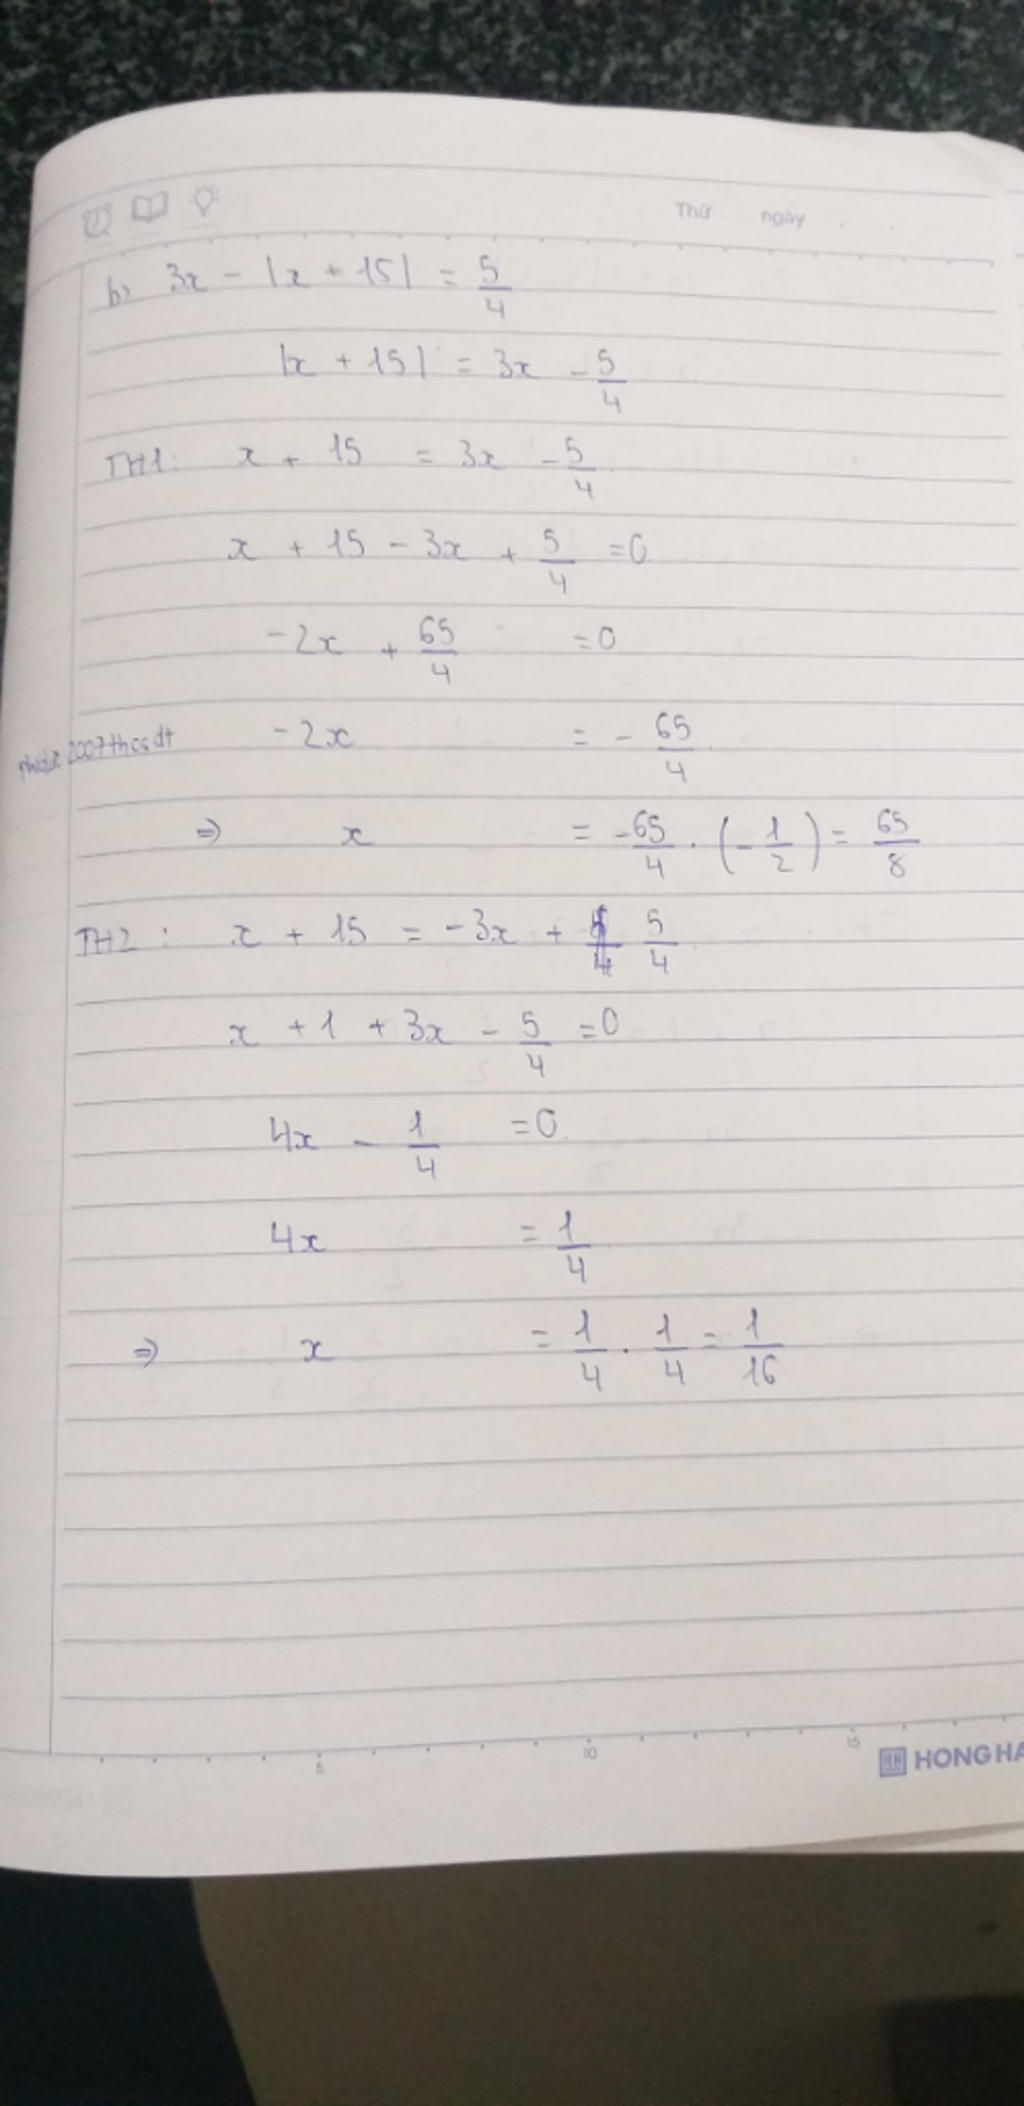 Thứ ngày
b, 3x - |x + 15| = 5/4
|x + 15| = 3x - 5/4
TH1: x + 15 = 3x - 5/4
x + 15 - 3x + 5/4 = 0
-2x + 65/4 = 0
-2x = - 65/4
2007thcsdt
=> x = -65/4 . (-1/2) = 65/8
TH2: x + 15 = -3x + 5/4
x + 1 + 3x - 5/4 = 0
4x - 1/4 = 0
4x = 1/4
=> x = 1/4 . 1/4 = 1/16
5 10 15
HONG HA